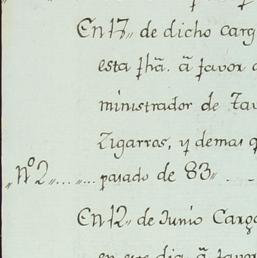 En 17,, de dicho carg
esta fhã. ã favor d
ministrador de Tav
Zigarros, y demas q
,,Nº 2,,.....,,... pasado de 83,, . -
En 12,, de Junio Cargo
en este dia ã favor